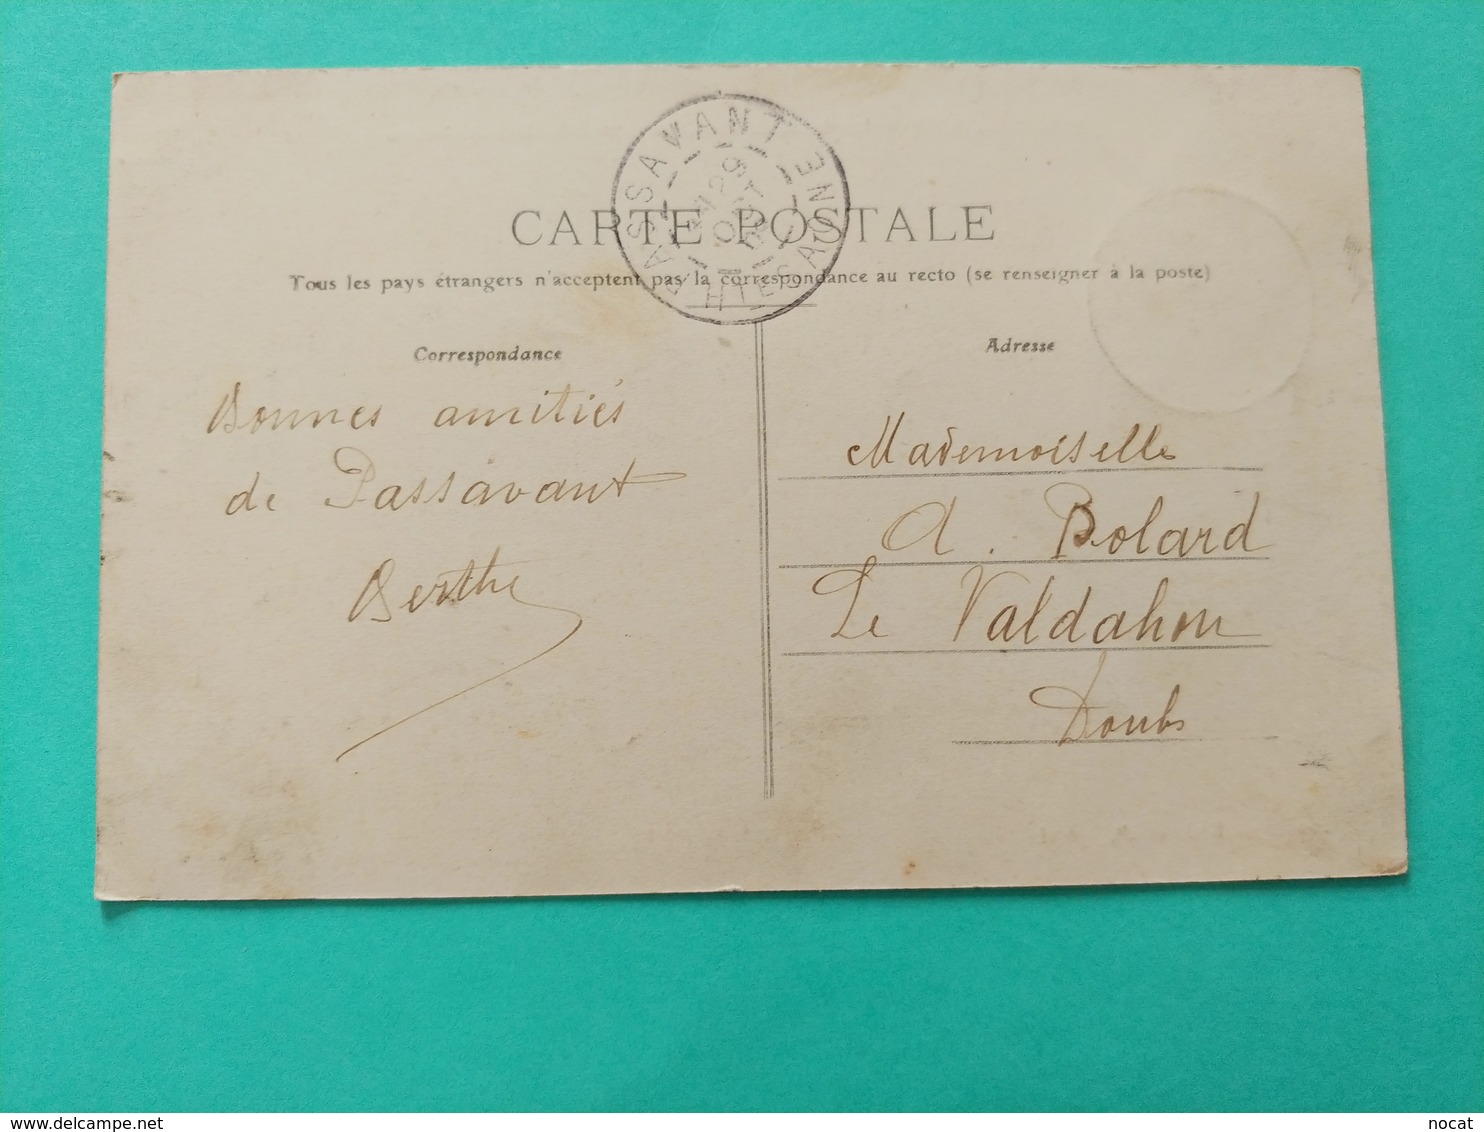 PASSAVANT
29
OCT
HTE SAONE
CARTE POSTALE
Tous les pays étrangers n'acceptent pas la correspondance au recto (se renseigner à la poste)
Correspondance
Bonnes amitiés
de Passavant
Berthe
Adresse
Mademoiselle
A. Bolard
Le Valdahon
Doubs
nocat